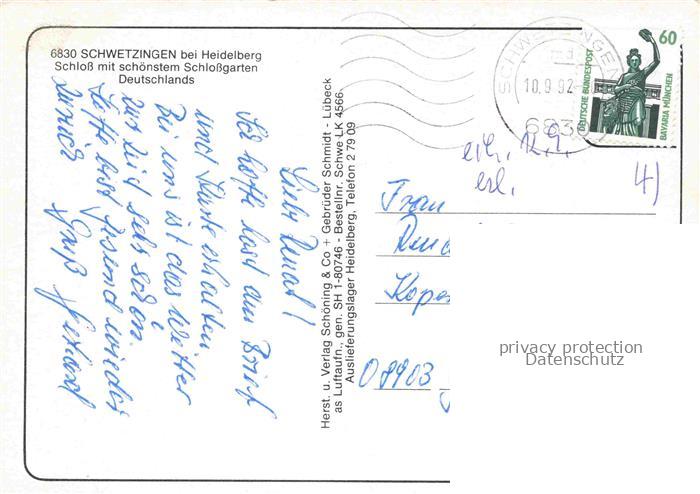 6830 SCHWETZINGEN bei Heidelberg
Schloß mit schönstem Schloßgarten
Deutschlands
Liebe Renate!
Ich hoffe hast den Brief
und Karte erhalten
Bei uns ist das Wetter
zur Zeit sehr schön
bist gesund wieder
zurück
Gruß
Herst. u. Verlag Schöning & Co + Gebrüder Schmidt - Lübeck
as Luftaufn., gen. SH 1-80746 - Bestellnr. Schwe LK 4566
Auslieferungslager Heidelberg, Telefon 2 79 09
SCHWETZINGEN
10.9.92
683
60
DEUTSCHE BUNDESPOST
BAVARIA MÜNCHEN
erl.
4)
Frau
Rena
Kope
O 8903
privacy protection
Datenschutz